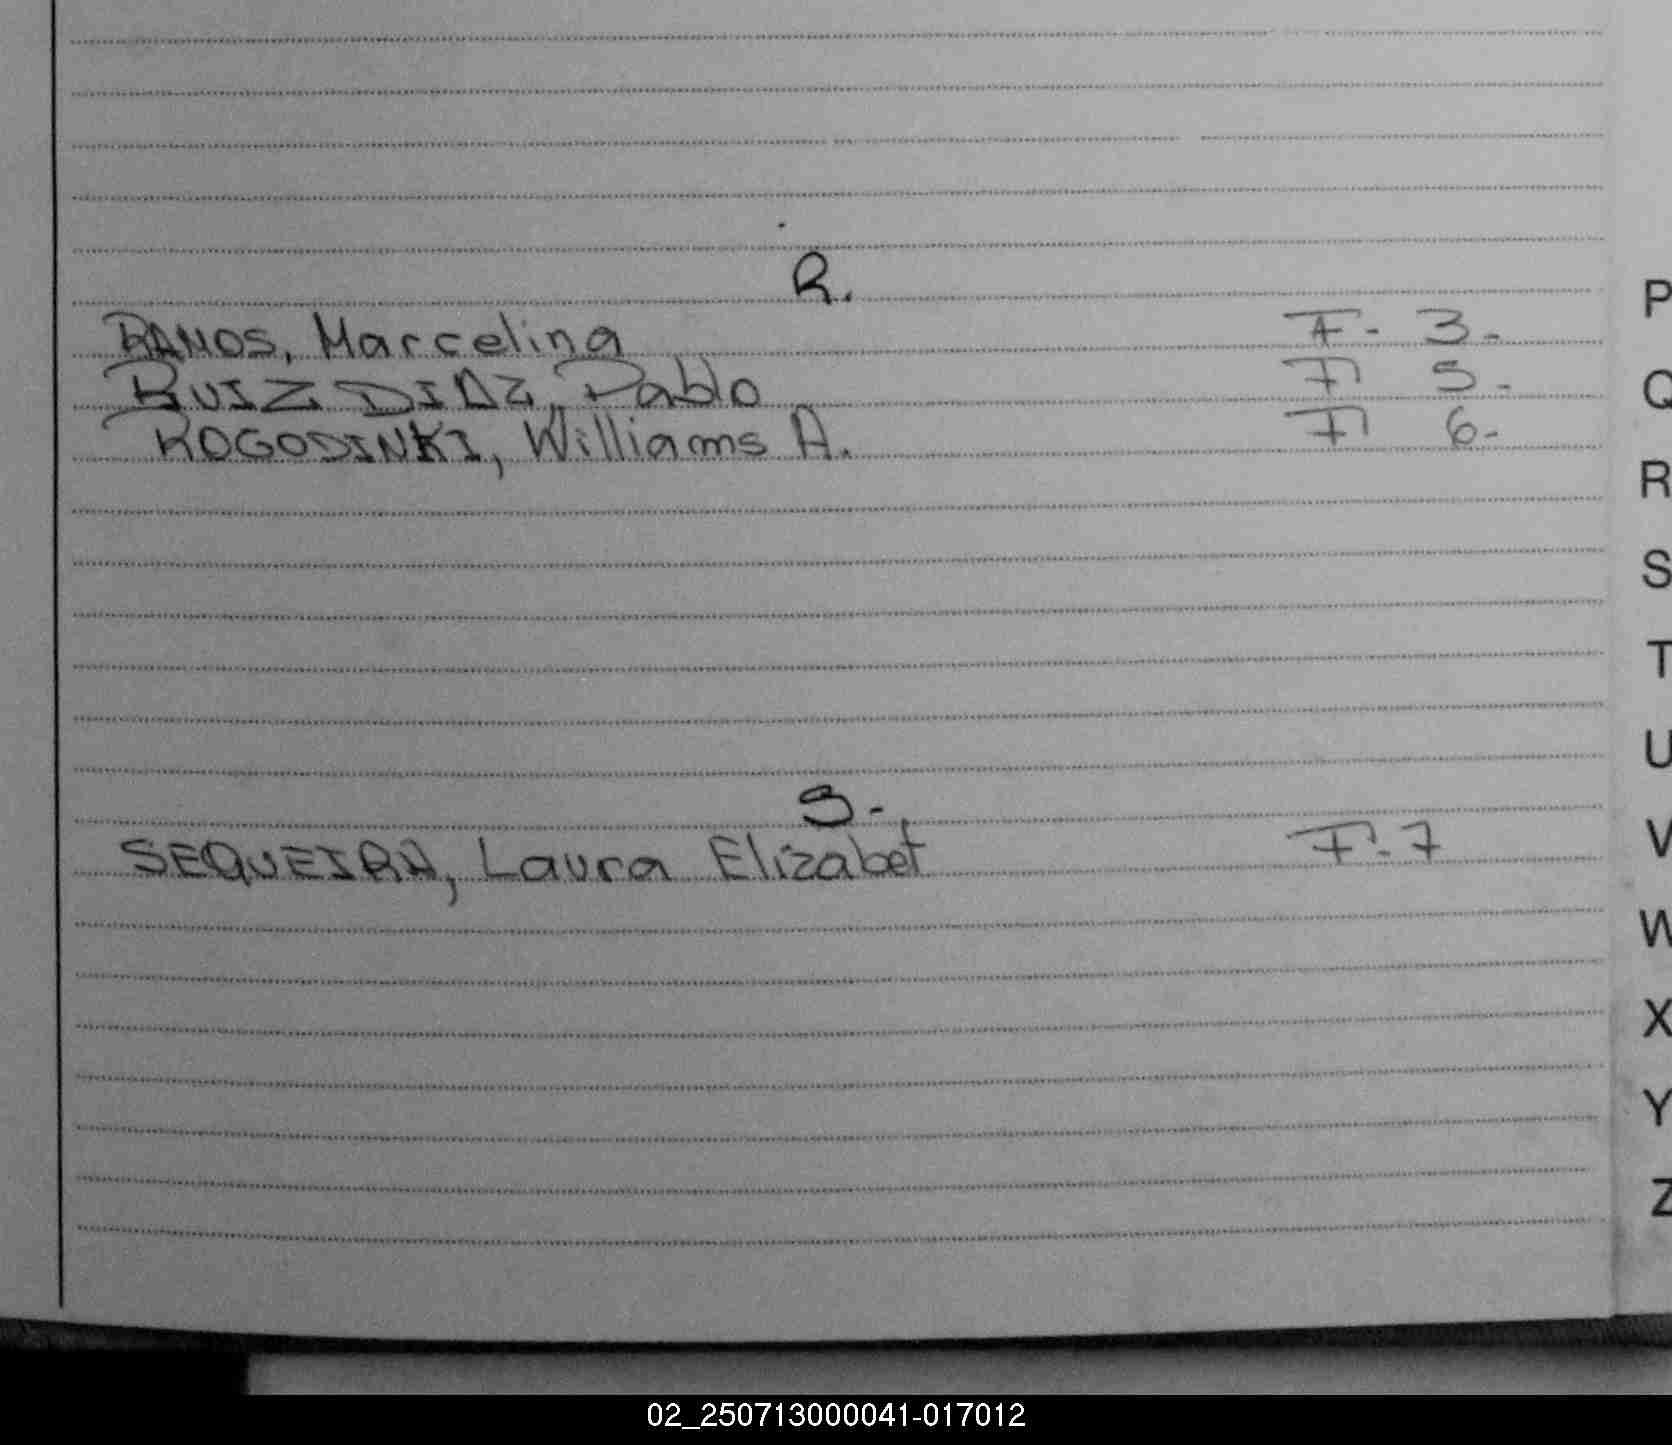 R.
RAMOS, Marcelina F. 3.-
RUIZ DIAZ, Pablo F 5.-
ROGODINKI, Williams A. F 6.-
S.-
SEQUEIRA, Laura Elizabet F. 7
P
Q
R
S
T
U
V
W
X
Y
Z
02_250713000041-017012